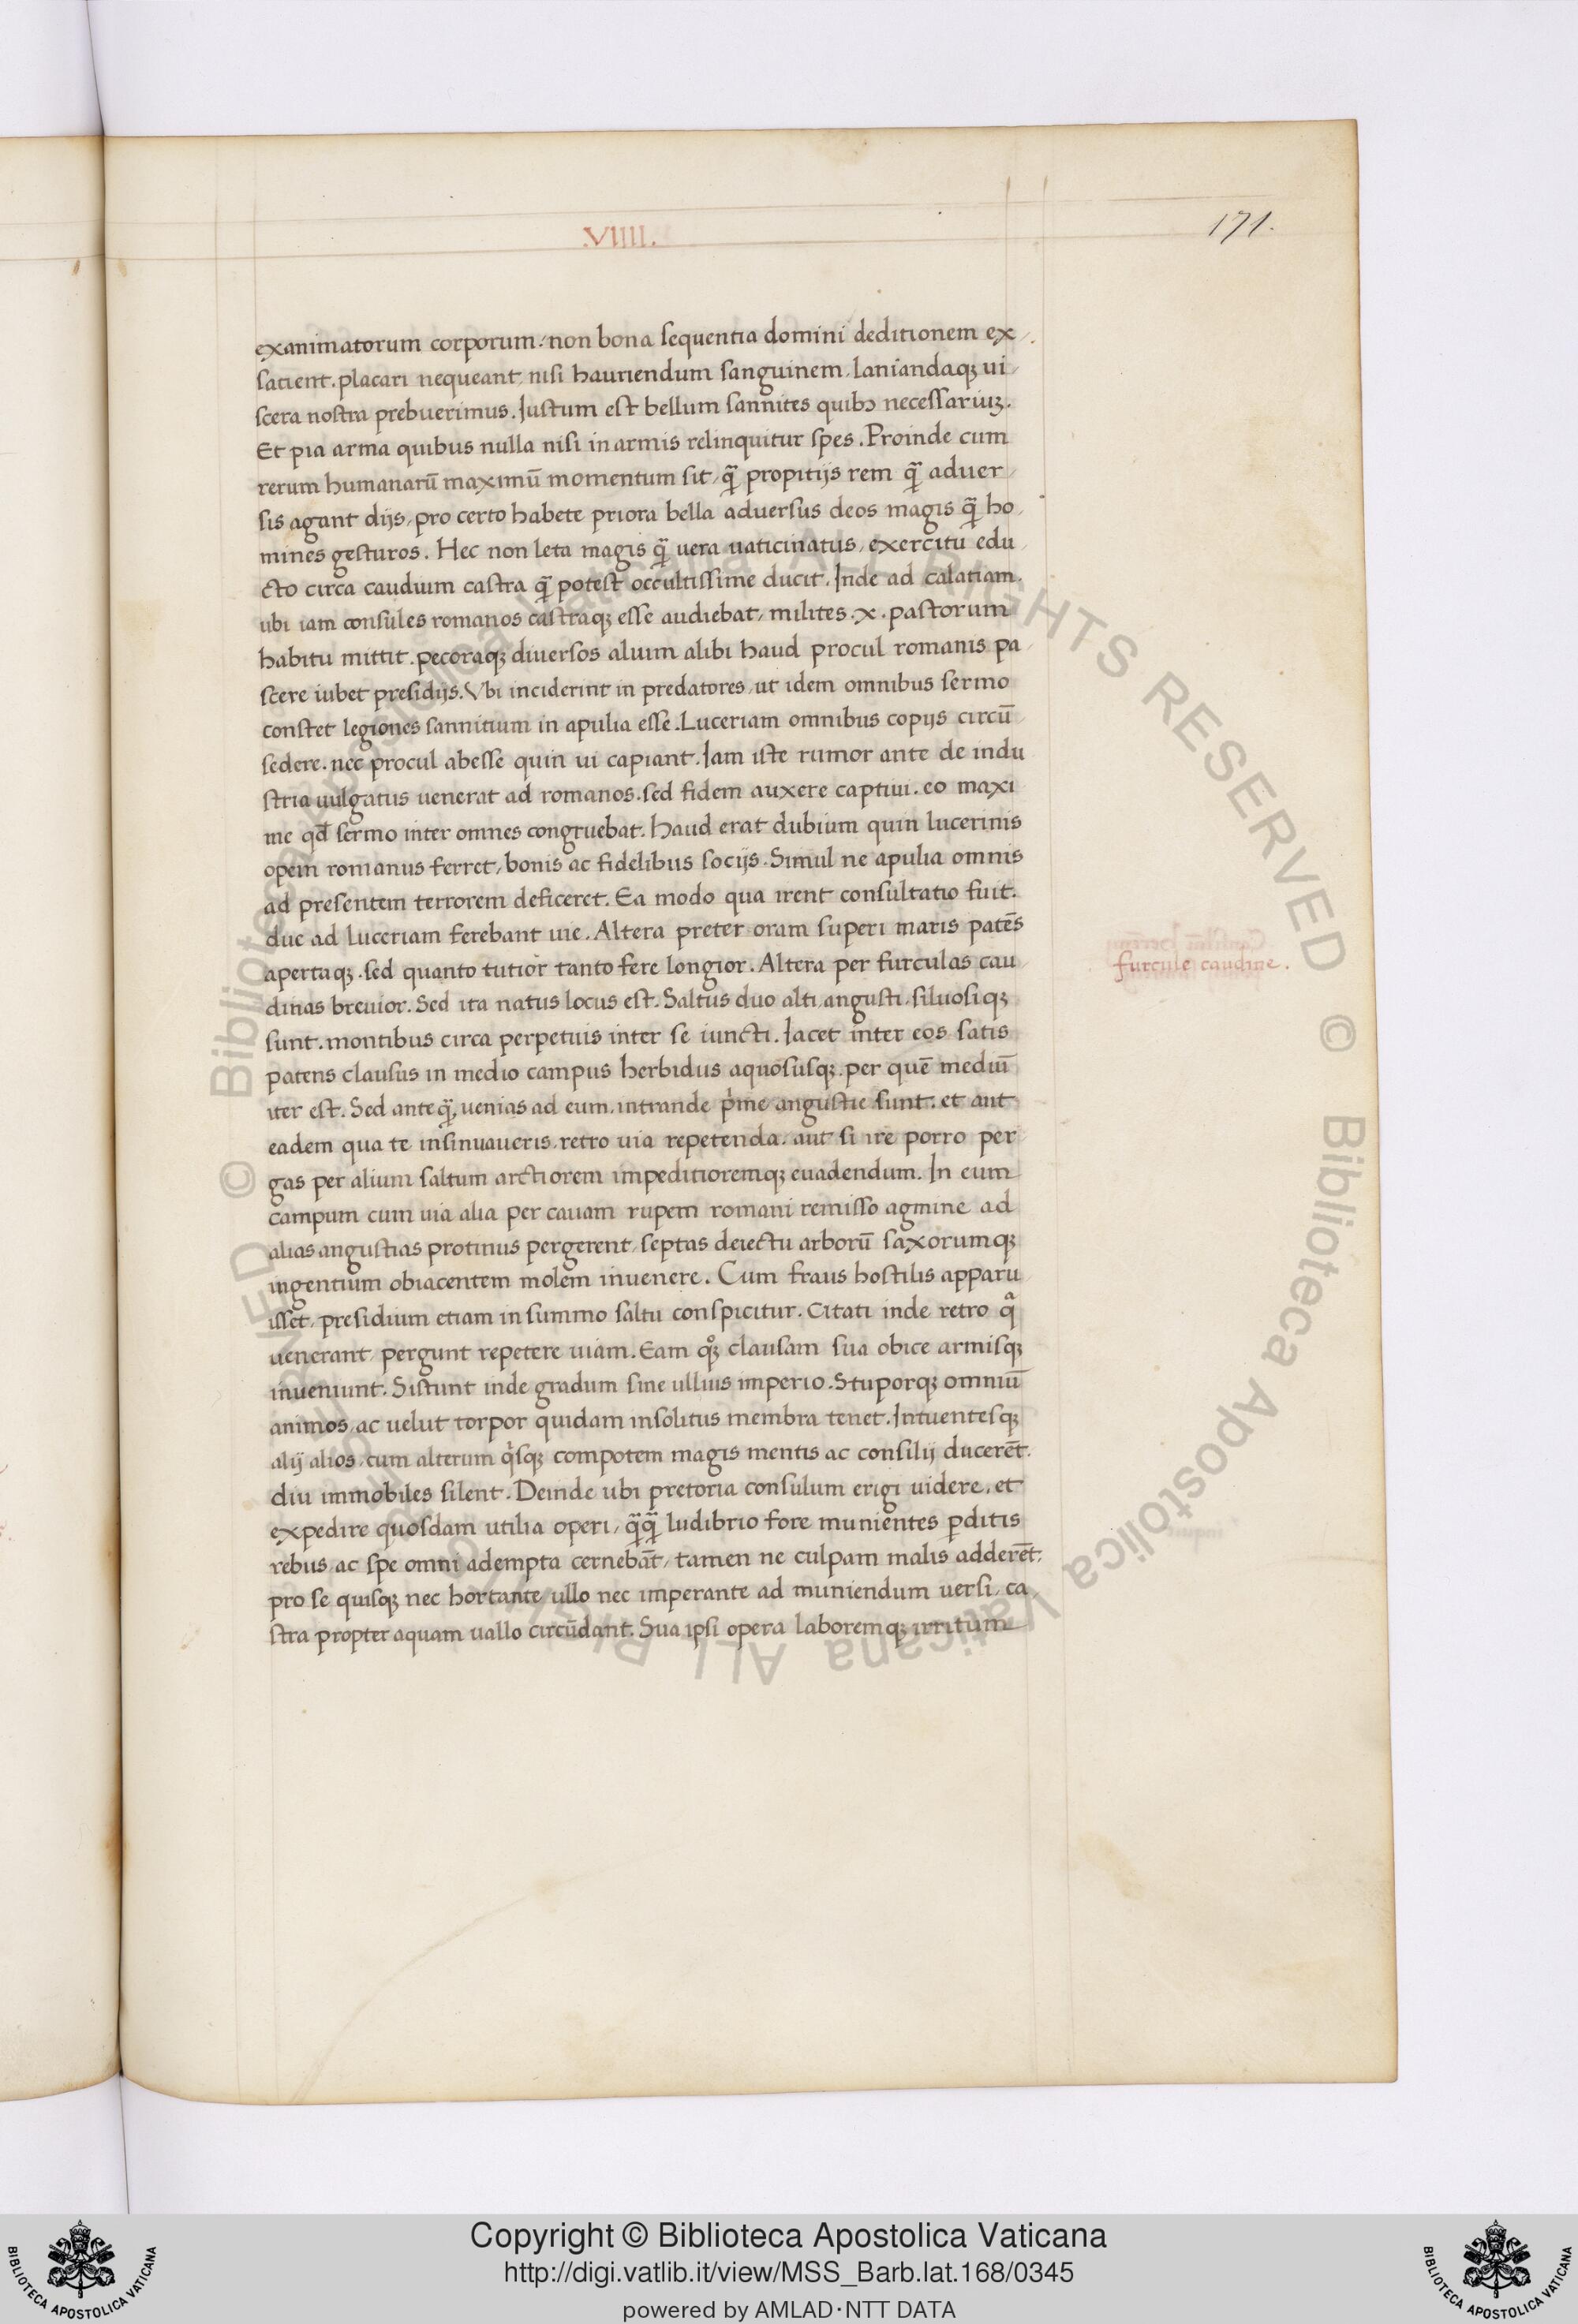 .VIIII.
171.
exanimatorum corporum. non bona sequentia domini deditionem ex
satient. placari nequeant, nisi hauriendum sanguinem, laniandaqꝫ ui
scera nostra prebuerimus. Iustum est bellum sannites quibꝫ necessariuꝫ.
Et pia arma quibus nulla nisi in armis relinquitur spes. Proinde cum
rerum humanarū maximū momentum sit, q̄ꝫ propitijs rem q̄ꝫ aduer
sis agant dijs, pro certo habete priora bella aduersus deos magis q̄ꝫ ho
mines gesturos. Hec non leta magis q̄ꝫ uera uaticinatus, exercitu edu
cto circa caudium castra q̄ꝫ potest occultissime ducit. Inde ad calatiam.
ubi iam consules romanos castraqꝫ esse audiebat, milites .x. pastorum
habitu mittit. pecoraqꝫ diuersos alium alibi haud procul romanis pa
scere iubet presidijs. Vbi inciderint in predatores, ut idem omnibus sermo
constet legiones sannitium in apulia esse. Luceriam omnibus copijs circū
sedere. nec procul abesse quin ui capiant. Iam iste rumor ante de indu
stria uulgatus uenerat ad romanos. sed fidem auxere captiui. eo maxi
me qđ sermo inter omnes congruebat. haud erat dubium quin lucerinis
opem romanus ferret, bonis ac fidelibus socijs. Simul ne apulia omnis
ad presentem terrorem deficeret. Ea modo qua irent consultatio fuit.
due ad luceriam ferebant uie. Altera preter oram superi maris patēs
apertaqꝫ. sed quanto tutior tanto fere longior. Altera per furculas cau
furcule caudine.
dinas breuior. Sed ita natus locus est. Saltus duo alti, angusti, siluosiqꝫ
sunt. montibus circa perpetuis inter se iuncti. Iacet inter eos satis
patens clausus in medio campus herbidus aquosusqꝫ. per quē mediū
iter est. Sed anteq̄ꝫ uenias ad eum, intrande pͥme angustie sunt. et aut
eadem qua te insinuaueris, retro uia repetenda. aut si ire porro per
gas per alium saltum arctiorem impeditioremqꝫ euadendum. In eum
campum cum uia alia per cauam rupem romani remisso agmine ad
alias angustias protinus pergerent, septas deiectu arborū saxorumqꝫ
ingentium obiacentem molem inuenere. Cum fraus hostilis apparu
isset, presidium etiam in summo saltu conspicitur. Citati inde retro qͣ
uenerant pergunt repetere uiam. Eam qͦꝫ clausam sua obice armisqꝫ
inueniunt. Sistunt inde gradum sine ullius imperio. Stuporqꝫ omniū
animos, ac uelut torpor quidam insolitus membra tenet. Intuentesqꝫ
alij alios, cum alterum qͥsqꝫ compotem magis mentis ac consilij ducerēt.
diu immobiles silent. Deinde ubi pretoria consulum erigi uidere, et
expedire quosdam utilia operi, q̄ꝫq̄ꝫ ludibrio fore munientes ꝑditis
rebus, ac spe omni adempta cernebāt, tamen ne culpam malis adderēt.
pro se quisqꝫ nec hortante ullo nec imperante ad muniendum uersi, ca
stra propter aquam uallo circūdant. Sua ipsi opera laboremqꝫ irritum
Copyright © Biblioteca Apostolica Vaticana
http://digi.vatlib.it/view/MSS_Barb.lat.168/0345
powered by AMLAD·NTT DATA
BIBLIOTECA APOSTOLICA VATICANA
BIBLIOTECA APOSTOLICA VATICANA
© Biblioteca Apostolica Vaticana ALL RIGHTS RESERVED
© Biblioteca Apostolica Vaticana ALL RIGHTS RESERVED